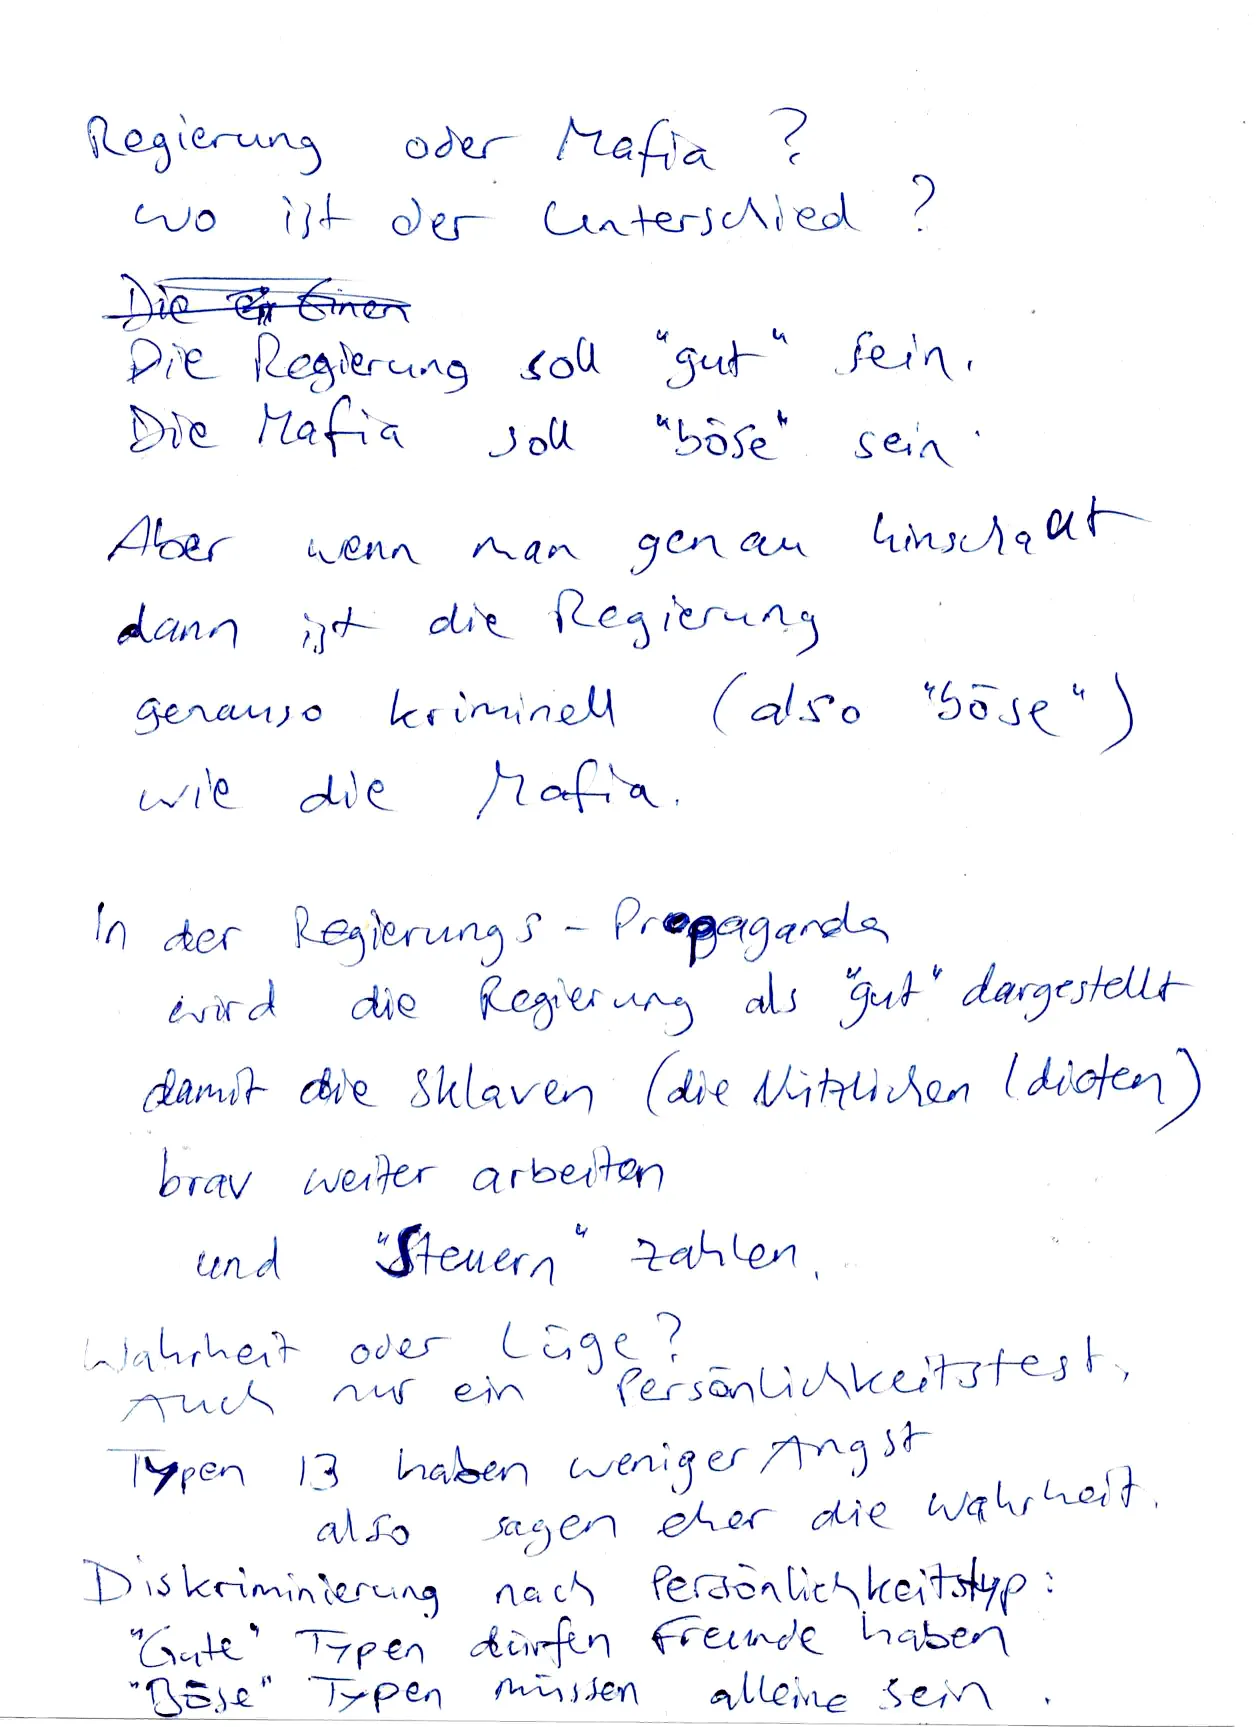 Regierung oder Mafia?
wo ist der Unterschied?
Die Einen
Die Regierung soll "gut" sein.
Die Mafia soll "böse" sein.
Aber wenn man genau hinschaut
dann ist die Regierung
genauso kriminell (also "böse")
wie die Mafia.
In der Regierungs-Propaganda
wird die Regierung als "gut" dargestellt
damit die Sklaven (die Nützlichen Idioten)
brav weiter arbeiten
und "Steuern" zahlen.
Wahrheit oder Lüge?
Auch nur ein Persönlichkeitstest.
Typen 13 haben weniger Angst
also sagen eher die Wahrheit.
Diskriminierung nach Persönlichkeitstyp:
"Gute" Typen dürfen Freunde haben
"Böse" Typen müssen alleine sein.